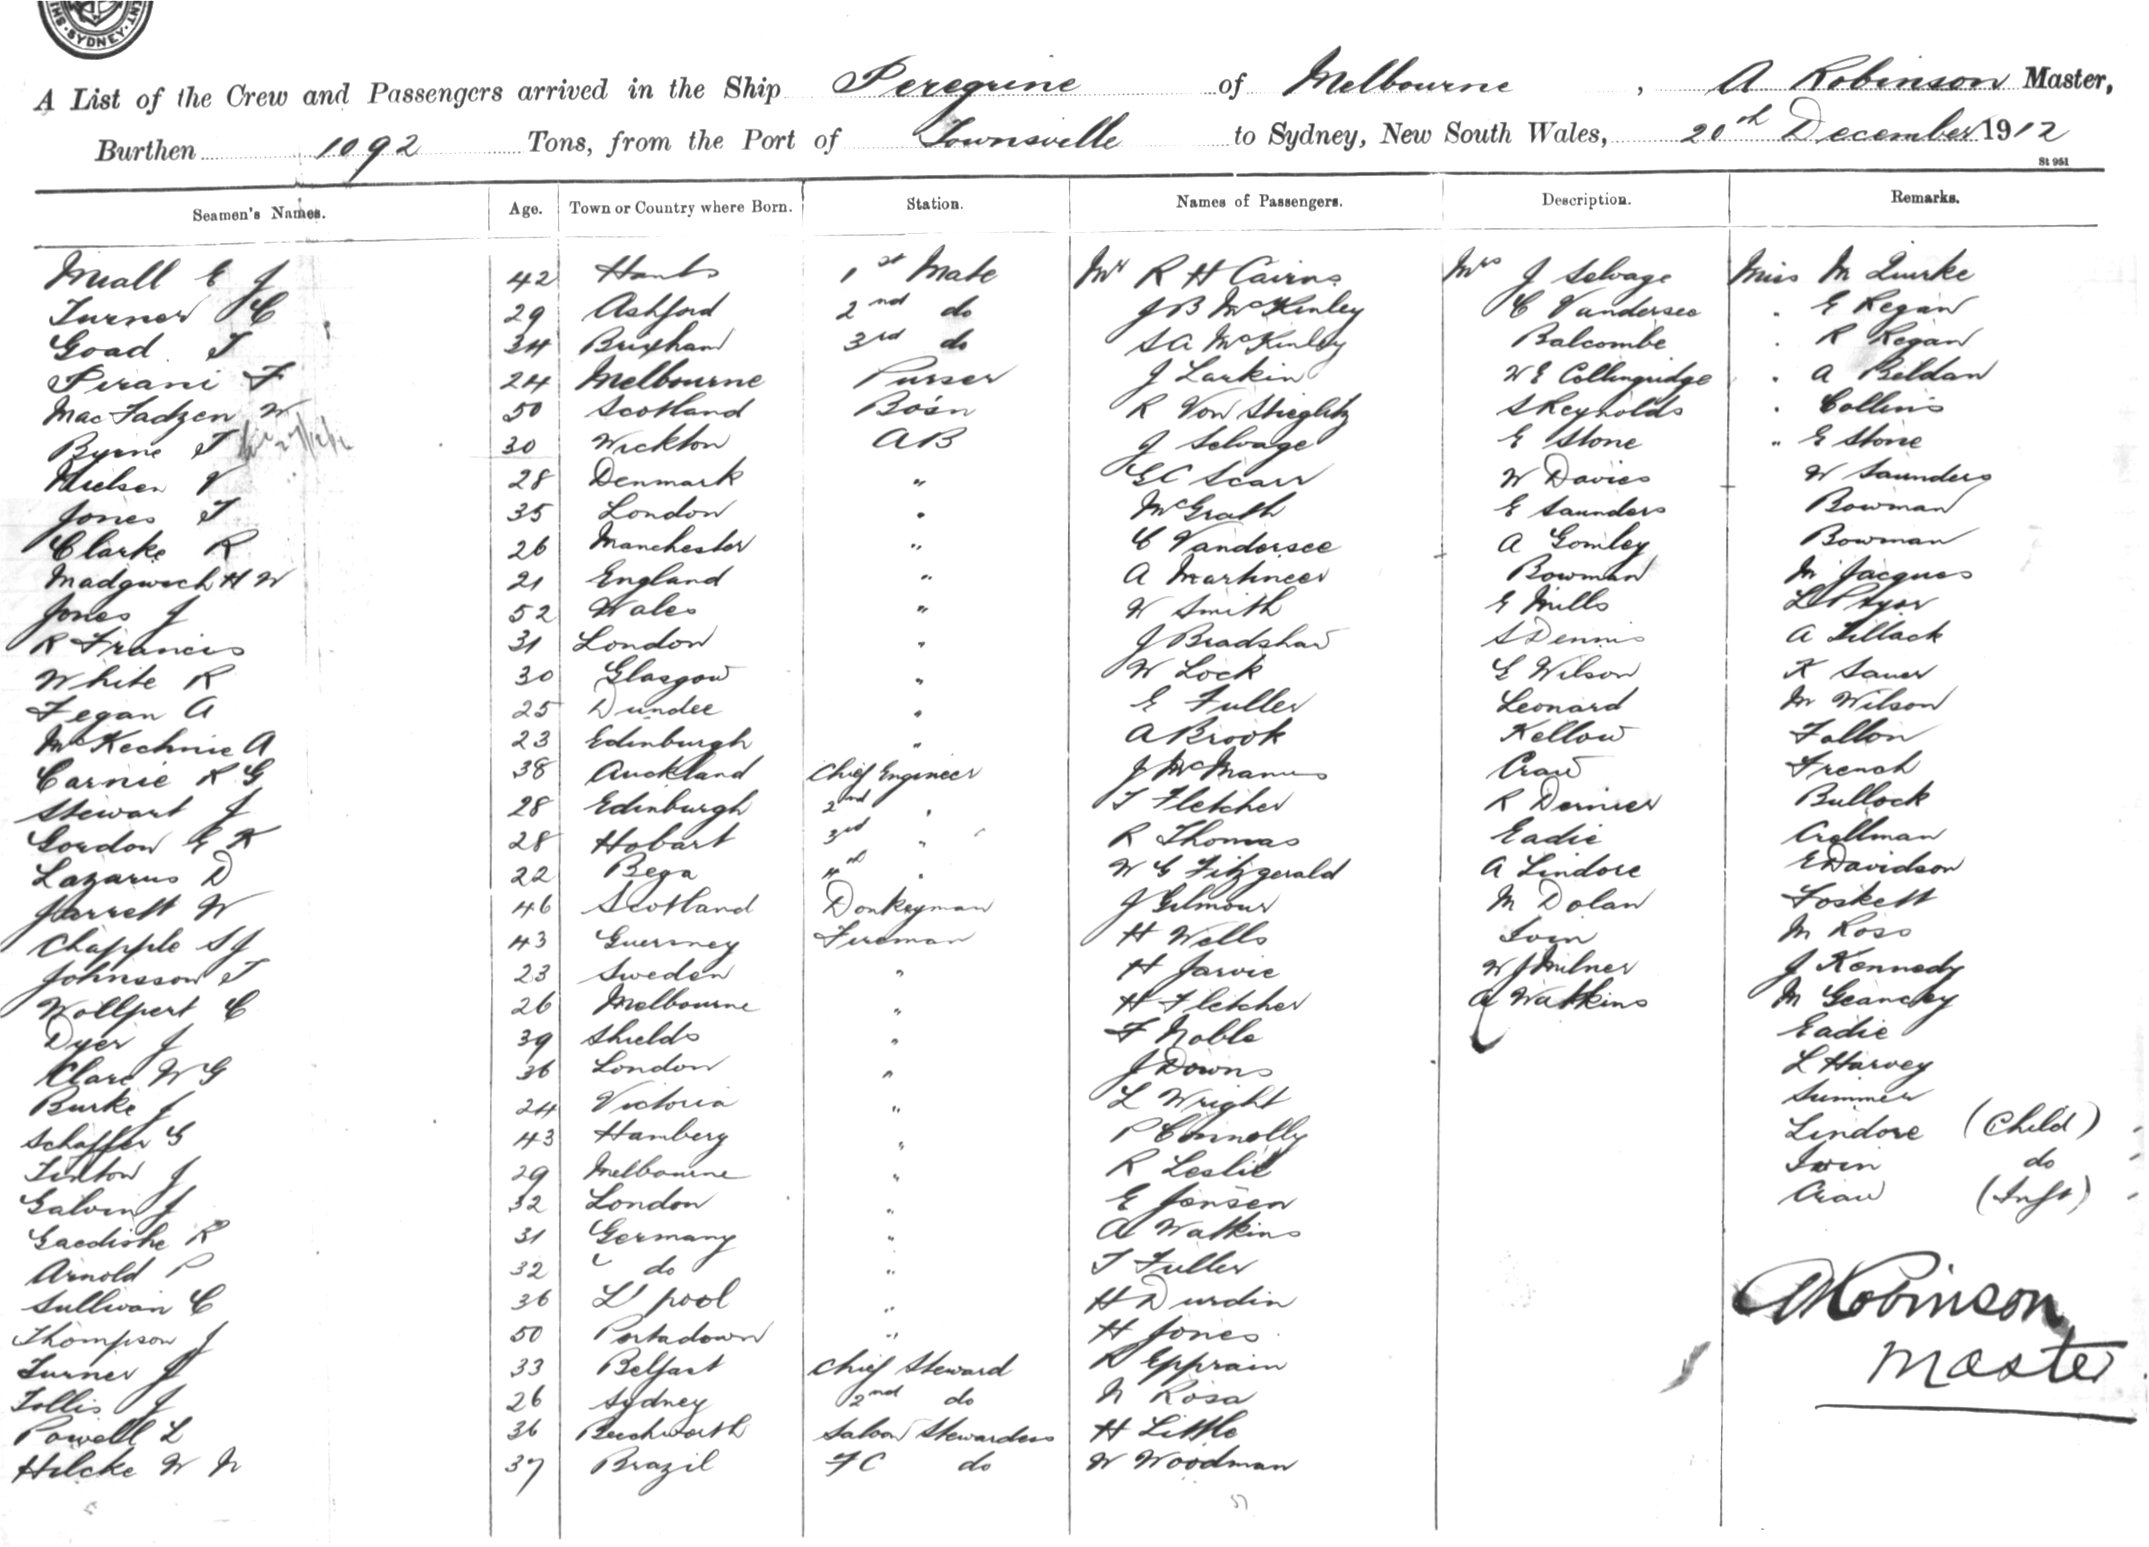 SYDNEY
A List of the Crew and Passengers arrived in the Ship Peregrine of Melbourne, A Robinson Master,
Burthen 1092 Tons, from the Port of Townsville to Sydney, New South Wales, 20th December 1912
St 951
Seamen's Names. Age. Town or Country where Born. Station. Names of Passengers. Description. Remarks.
Niall E J 42 Hants 1st Mate Mr R H Cairns Mrs J Selvage Miss M Quirke
Turner C 29 Ashford 2nd do J B McKinley C Vandersee " E Regan
Goad T 34 Brixham 3rd do S A McKinley Balcombe " R Regan
Pirani F 24 Melbourne Purser J Larkin W E Collingridge " A Beldan
MacFadzen W 50 Scotland Bosn R Von Stieglitz S Reynolds " Collins
Byrne T 30 Wickton AB J Selvage E Stone " E Stone
Nielsen V 28 Denmark " G C Scarr W Davies W Saunders
Jones T 35 London " McGrath E Saunders Bowman
Clarke R 26 Manchester " C Vandersee A Gomley Bowman
Madgwick H W 21 England " A Martineer Bowman M Jacques
Jones J 52 Wales " W Smith E Mills L Pryor
R Francis 31 London " J Bradshaw S Dennis A Tillack
White R 30 Glasgow " W Lock E Wilson K Sauer
Fegan A 25 Dundee " E Fuller Leonard M Wilson
McKechnie A 23 Edinburgh " A Brook Kellow Fallon
Carnie R G 38 Auckland Chief Engineer J McManus Craw French
Stewart J 28 Edinburgh 2nd " T Fletcher R Dernier Bullock
Gordon G K 28 Hobart 3rd " R Thomas Eadie Crellman
Lazarus D 22 Bega 4th " W G Fitzgerald A Lindore E Davidson
Jarrett W 46 Scotland Donkeyman J Gilmour M Dolan Foskett
Chapple S J 43 Guernsey Fireman H Wells Irvin M Ross
Johnsson T 23 Sweden " H Jarvie W J Milner J Kennedy
Wollpert C 26 Melbourne " H Fletcher A Watkins M Geaney
Dyer J 39 Shields " F Noble Eadie
Clare W G 36 London " J Downs L Harvey
Burke J 24 Victoria " L Wright Summer
Schaffer G 43 Hamberg " P Connolly Lindore (Child)
Linton J 29 Melbourne " R Leslie Irvin do
Galvin J 32 London " E Jensen Craw (Inft)
Gaedishe R 31 Germany " A Watkins
Arnold P 32 " do " T Fuller
Sullivan C 36 L'pool " H Durdin
Thompson J 50 Portadown " H Jones
Turner J 33 Belfast Chief Steward R Epprain
Tollis J 26 Sydney 2nd do N Rosa
Powell L 36 Beechworth Saloon Stewardess H Little
Hilcke W N 37 Brazil FC do W Woodman
A Robinson
Master